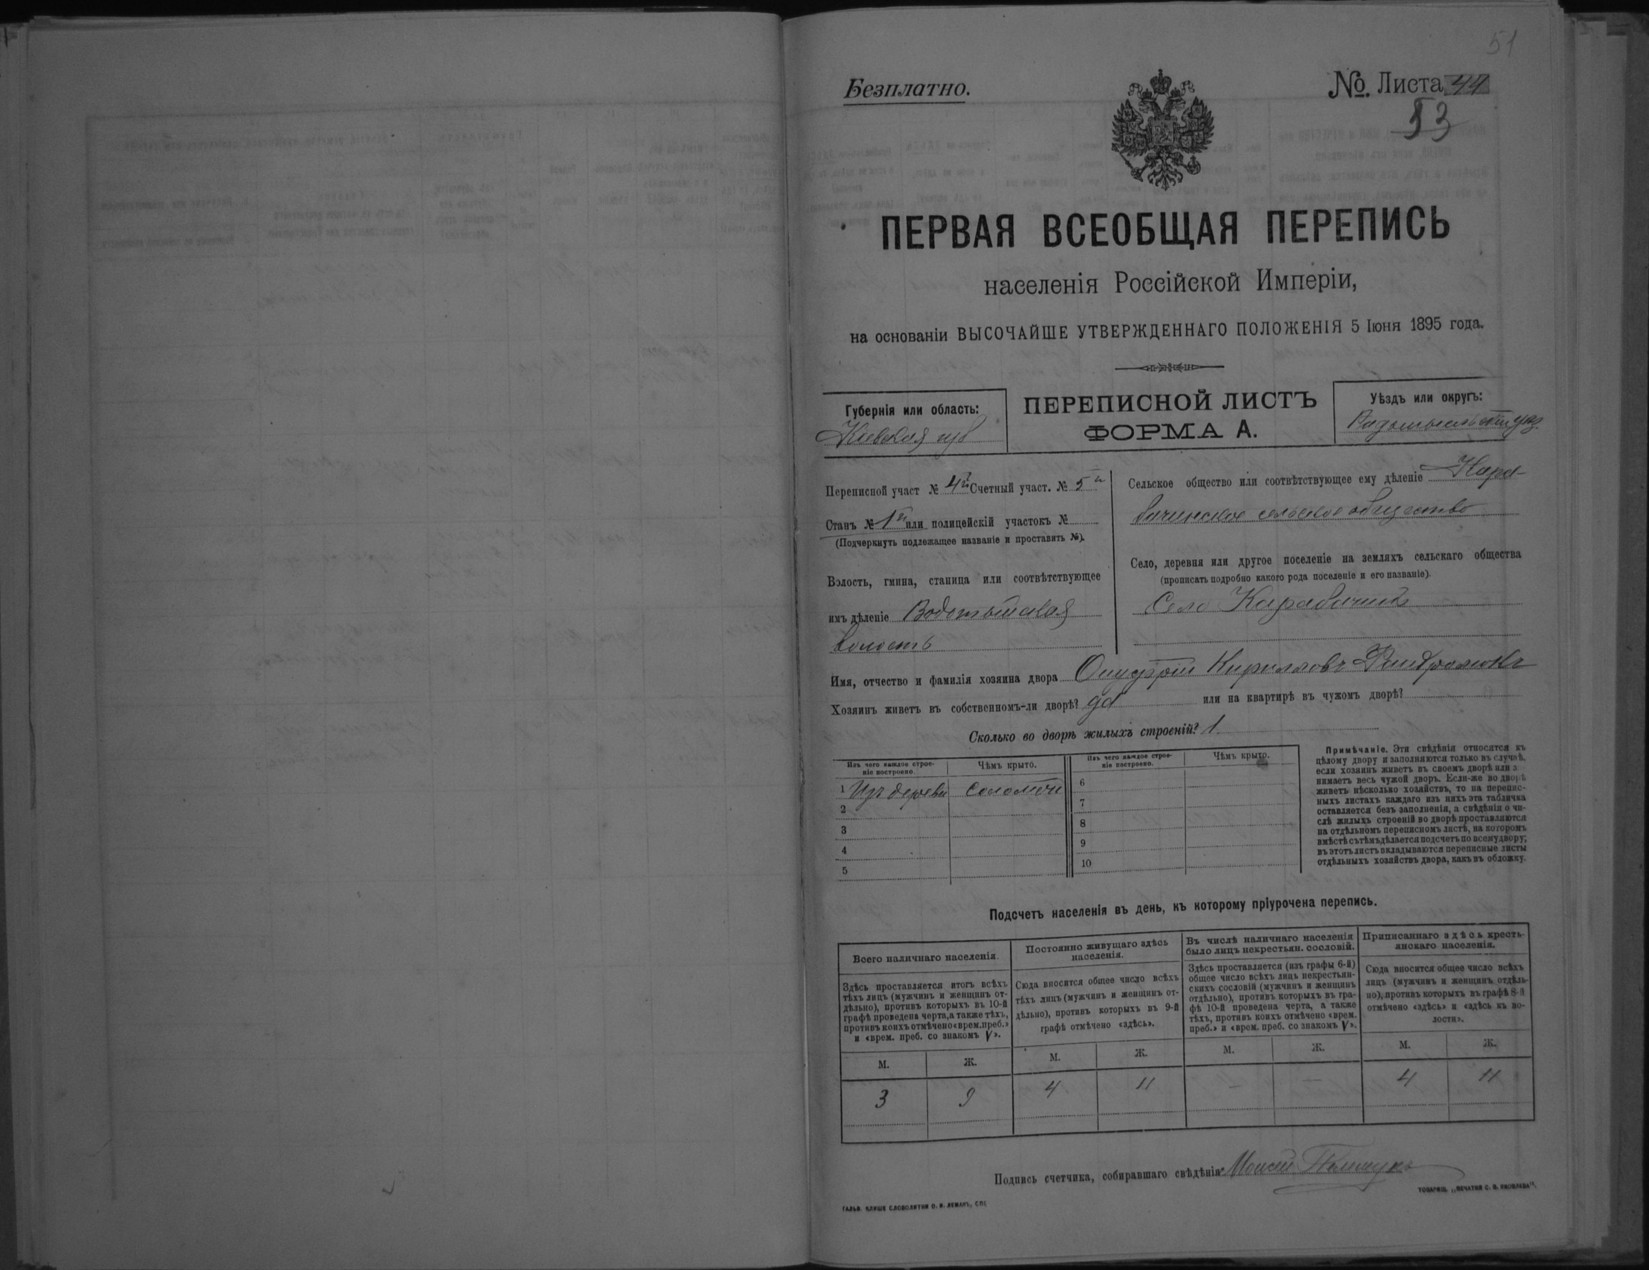 51
Безплатно.
№. Листа 44
53
ПЕРВАЯ ВСЕОБЩАЯ ПЕРЕПИСЬ
населенія Россійской Имперіи,
на основаніи ВЫСОЧАЙШЕ УТВЕРЖДЕННАГО ПОЛОЖЕНІЯ 5 Іюня 1895 года.
Губернія или область:
Кіевская губ
ПЕРЕПИСНОЙ ЛИСТЪ
ФОРМА А.
Уѣздъ или округъ:
Переписной участ № 4й Счетный участ. № 5й
Станъ № 1й или полицейскій участокъ №
(Подчеркнуть подлежащее названіе и проставить №).
Волость, гмина, станица или соотвѣтствующее
имъ дѣленіе Водотыйская
волость
Сельское общество или соотвѣтствующее ему дѣленіе Кара-
вачинское сельское общество
Село, деревня или другое поселеніе на земляхъ сельскаго общества
(прописать подробно какого рода поселеніе и его названіе).
Село Каравачинъ
Имя, отчество и фамилія хозяина двора Кирилловъ
Хозяинъ живетъ въ собственномъ-ли дворѣ? да или на квартирѣ въ чужомъ дворѣ?
Сколько во дворѣ жилыхъ строеній? 1
Изъ чего каждое строе-
ніе построено.
Чѣмъ крыто.
Изъ чего каждое строе-
ніе построено.
Чѣмъ крыто.
1 Изъ дерева соломой
2
3
4
5
6
7
8
9
10
Примѣчаніе. Эти свѣдѣнія относятся къ
цѣлому двору и заполняются только въ случаѣ,
если хозяинъ живетъ въ своемъ дворѣ или за-
нимаетъ весь чужой дворъ. Если-же во дворѣ
живетъ нѣсколько хозяйствъ, то на перепис-
ныхъ листахъ каждаго изъ нихъ эта табличка
оставляется безъ заполненія, а свѣдѣнія о чи-
слѣ жилыхъ строеній во дворѣ проставляются
на отдѣльномъ переписномъ листѣ, на которомъ
вмѣстѣ съ тѣмъ дѣлается подсчетъ по всему двору;
въ этотъ листъ вкладываются переписные листы
отдѣльныхъ хозяйствъ двора, какъ въ обложку.
Подсчетъ населенія въ день, къ которому пріурочена перепись.
Всего наличнаго населенія.
Здѣсь проставляется итогъ всѣхъ
тѣхъ лицъ (мужчинъ и женщинъ от-
дѣльно), противъ которыхъ въ 10-й
графѣ проведена черта, а также тѣхъ,
противъ коихъ отмѣчено «врем. преб.»
и «врем. преб. со знакомъ V».
М. Ж.
3 9
Постоянно живущаго здѣсь
населенія.
Сюда вносится общее число всѣхъ
тѣхъ лицъ (мужчинъ и женщинъ от-
дѣльно), противъ которыхъ въ 9-й
графѣ отмѣчено «здѣсь».
М. Ж.
4 11
Въ числѣ наличнаго населенія
было лицъ некрестьян. сословій.
Здѣсь проставляется (изъ графы 6-й)
общее число всѣхъ лицъ некрестьян-
скихъ сословій (мужчинъ и женщинъ
отдѣльно), противъ которыхъ въ гра-
фѣ 10-й проведена черта, а также
тѣхъ, противъ коихъ отмѣчено «врем.
преб.» и «врем. преб. со знакомъ V».
М. Ж.
– –
Приписаннаго здѣсь кресть-
янскаго населенія.
Сюда вносится общее число всѣхъ
лицъ (мужчинъ и женщинъ отдѣль-
но), противъ которыхъ въ графѣ 8-й
отмѣчено «здѣсь» и «здѣсь въ во-
лости».
М. Ж.
4 11
Подпись счетчика, собиравшаго свѣдѣнія: Моисей Полищукъ
ГАЛЬВ. КЛИШЕ СЛОВОЛИТНИ О. И. ЛЕМАНЪ, СПБ.
ТОВАРИЩ. „ПЕЧАТНЯ С. П. ЯКОВЛЕВА“.